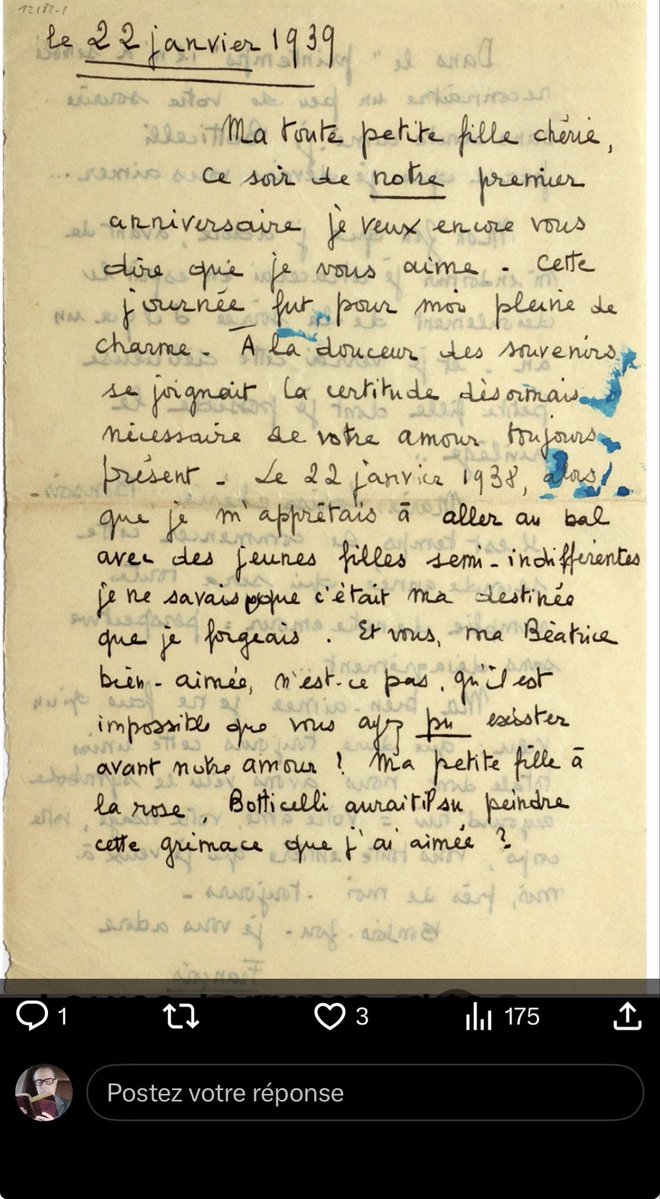 12182-2
le 22 janvier 1939
Ma toute petite fille chérie,
ce soir de notre premier
anniversaire je veux encore vous
dire que je vous aime - cette
journée fut pour moi pleine de
charme - A la douceur des souvenirs
se joignait la certitude désormais
nécessaire de votre amour toujours
présent - Le 22 janvier 1938, alors
que je m'apprêtais à aller au bal
avec des jeunes filles semi-indifférentes
je ne savais que c'était ma destinée
que je forgeais. Et vous, ma Béatrice
bien-aimée, n'est-ce pas, qu'il est
impossible que vous ayez pu exister
avant notre amour ! Ma petite fille à
la rose, Botticelli aurait-il su peindre
cette grimace que j'ai aimée ?
1 3 175
Postez votre réponse